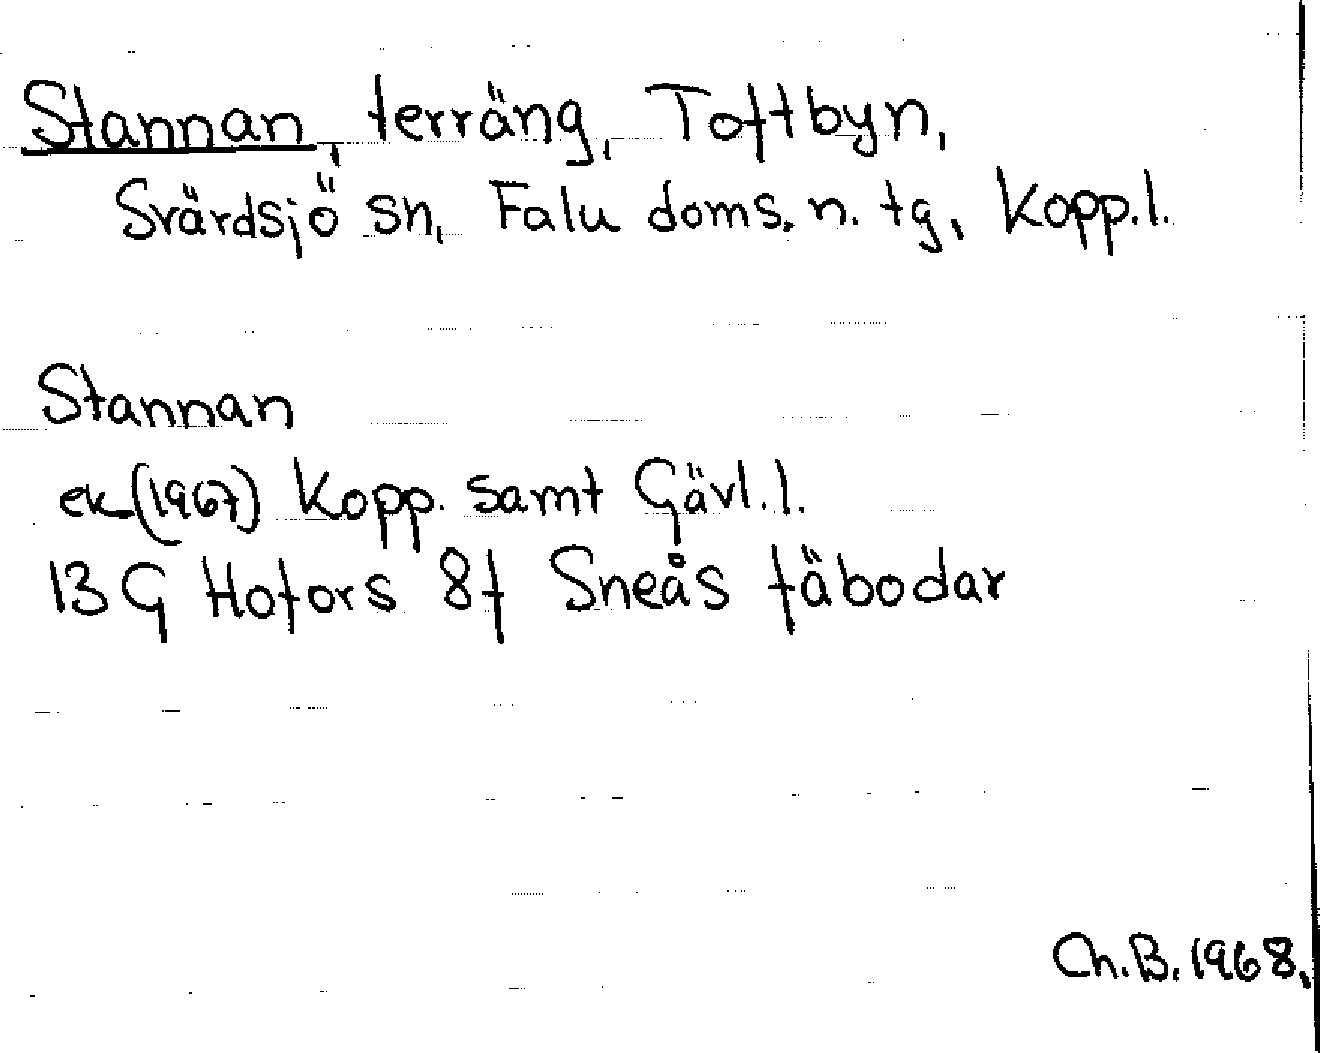 Stannan, terräng, Toftbyn,
Svärdsjö sn, Falu doms. n. tg, Kopp.l.
Stannan
ek (1967) Kopp. samt Gävl.l.
13G Hofors 8f Sneås fäbodar
Ch.B. 1968.